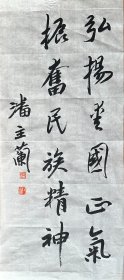 弘揚愛國正氣
振奮民族精神
潘主蘭